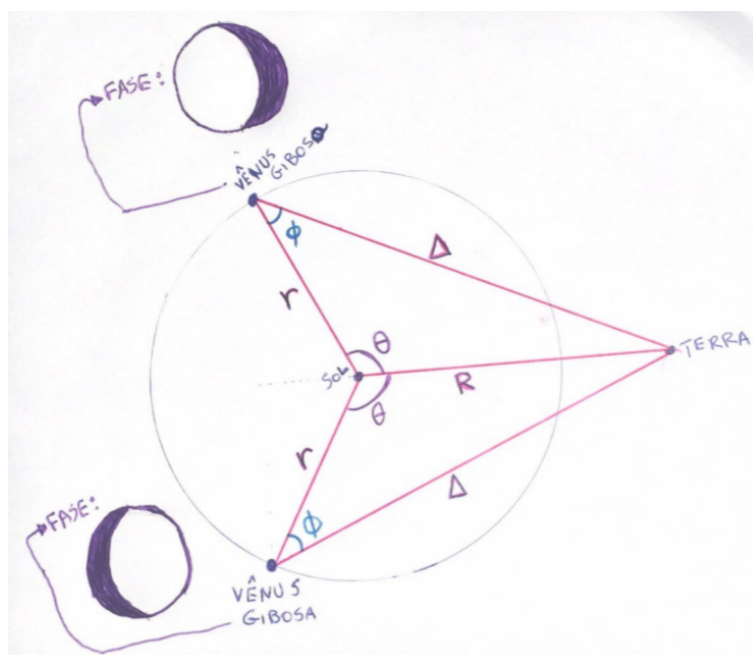 FASE:
VÊNUS
GIBOSA
ϕ
Δ
r
θ
SOL
TERRA
R
θ
r
Δ
FASE:
ϕ
VÊNUS
GIBOSA